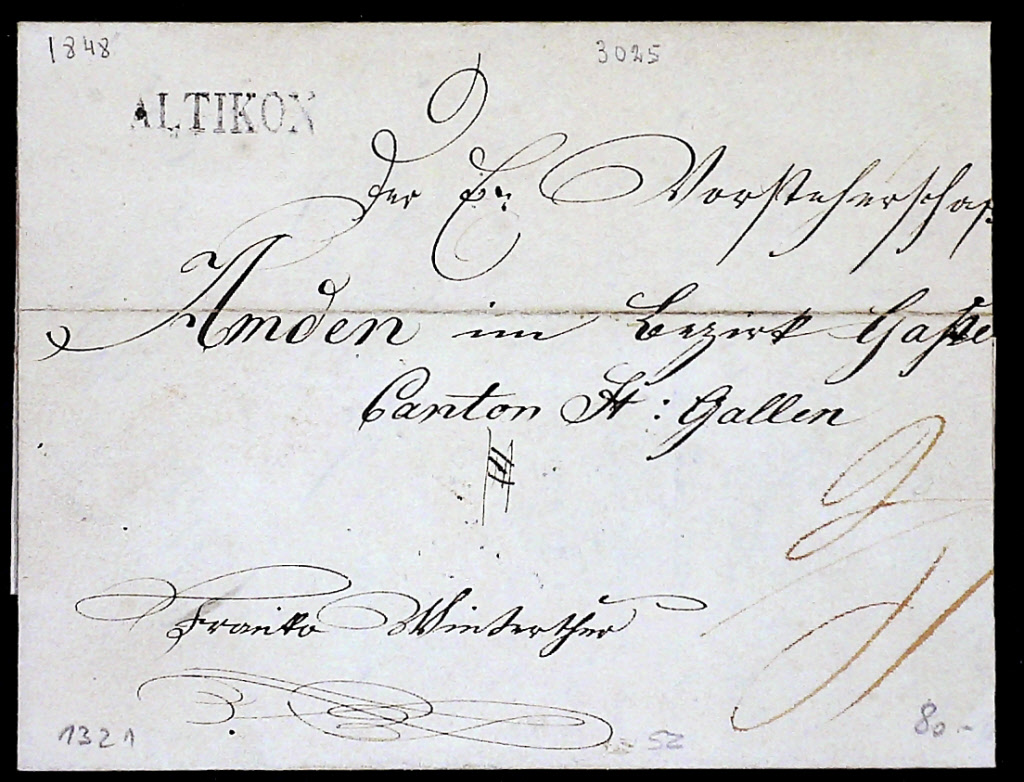 1848 3025
ALTIKON
Der E. Vorsteherschaf
Amden im Bezirk Gaste
Canton St: Gallen
Franko Winterthur
1321 52 80.-